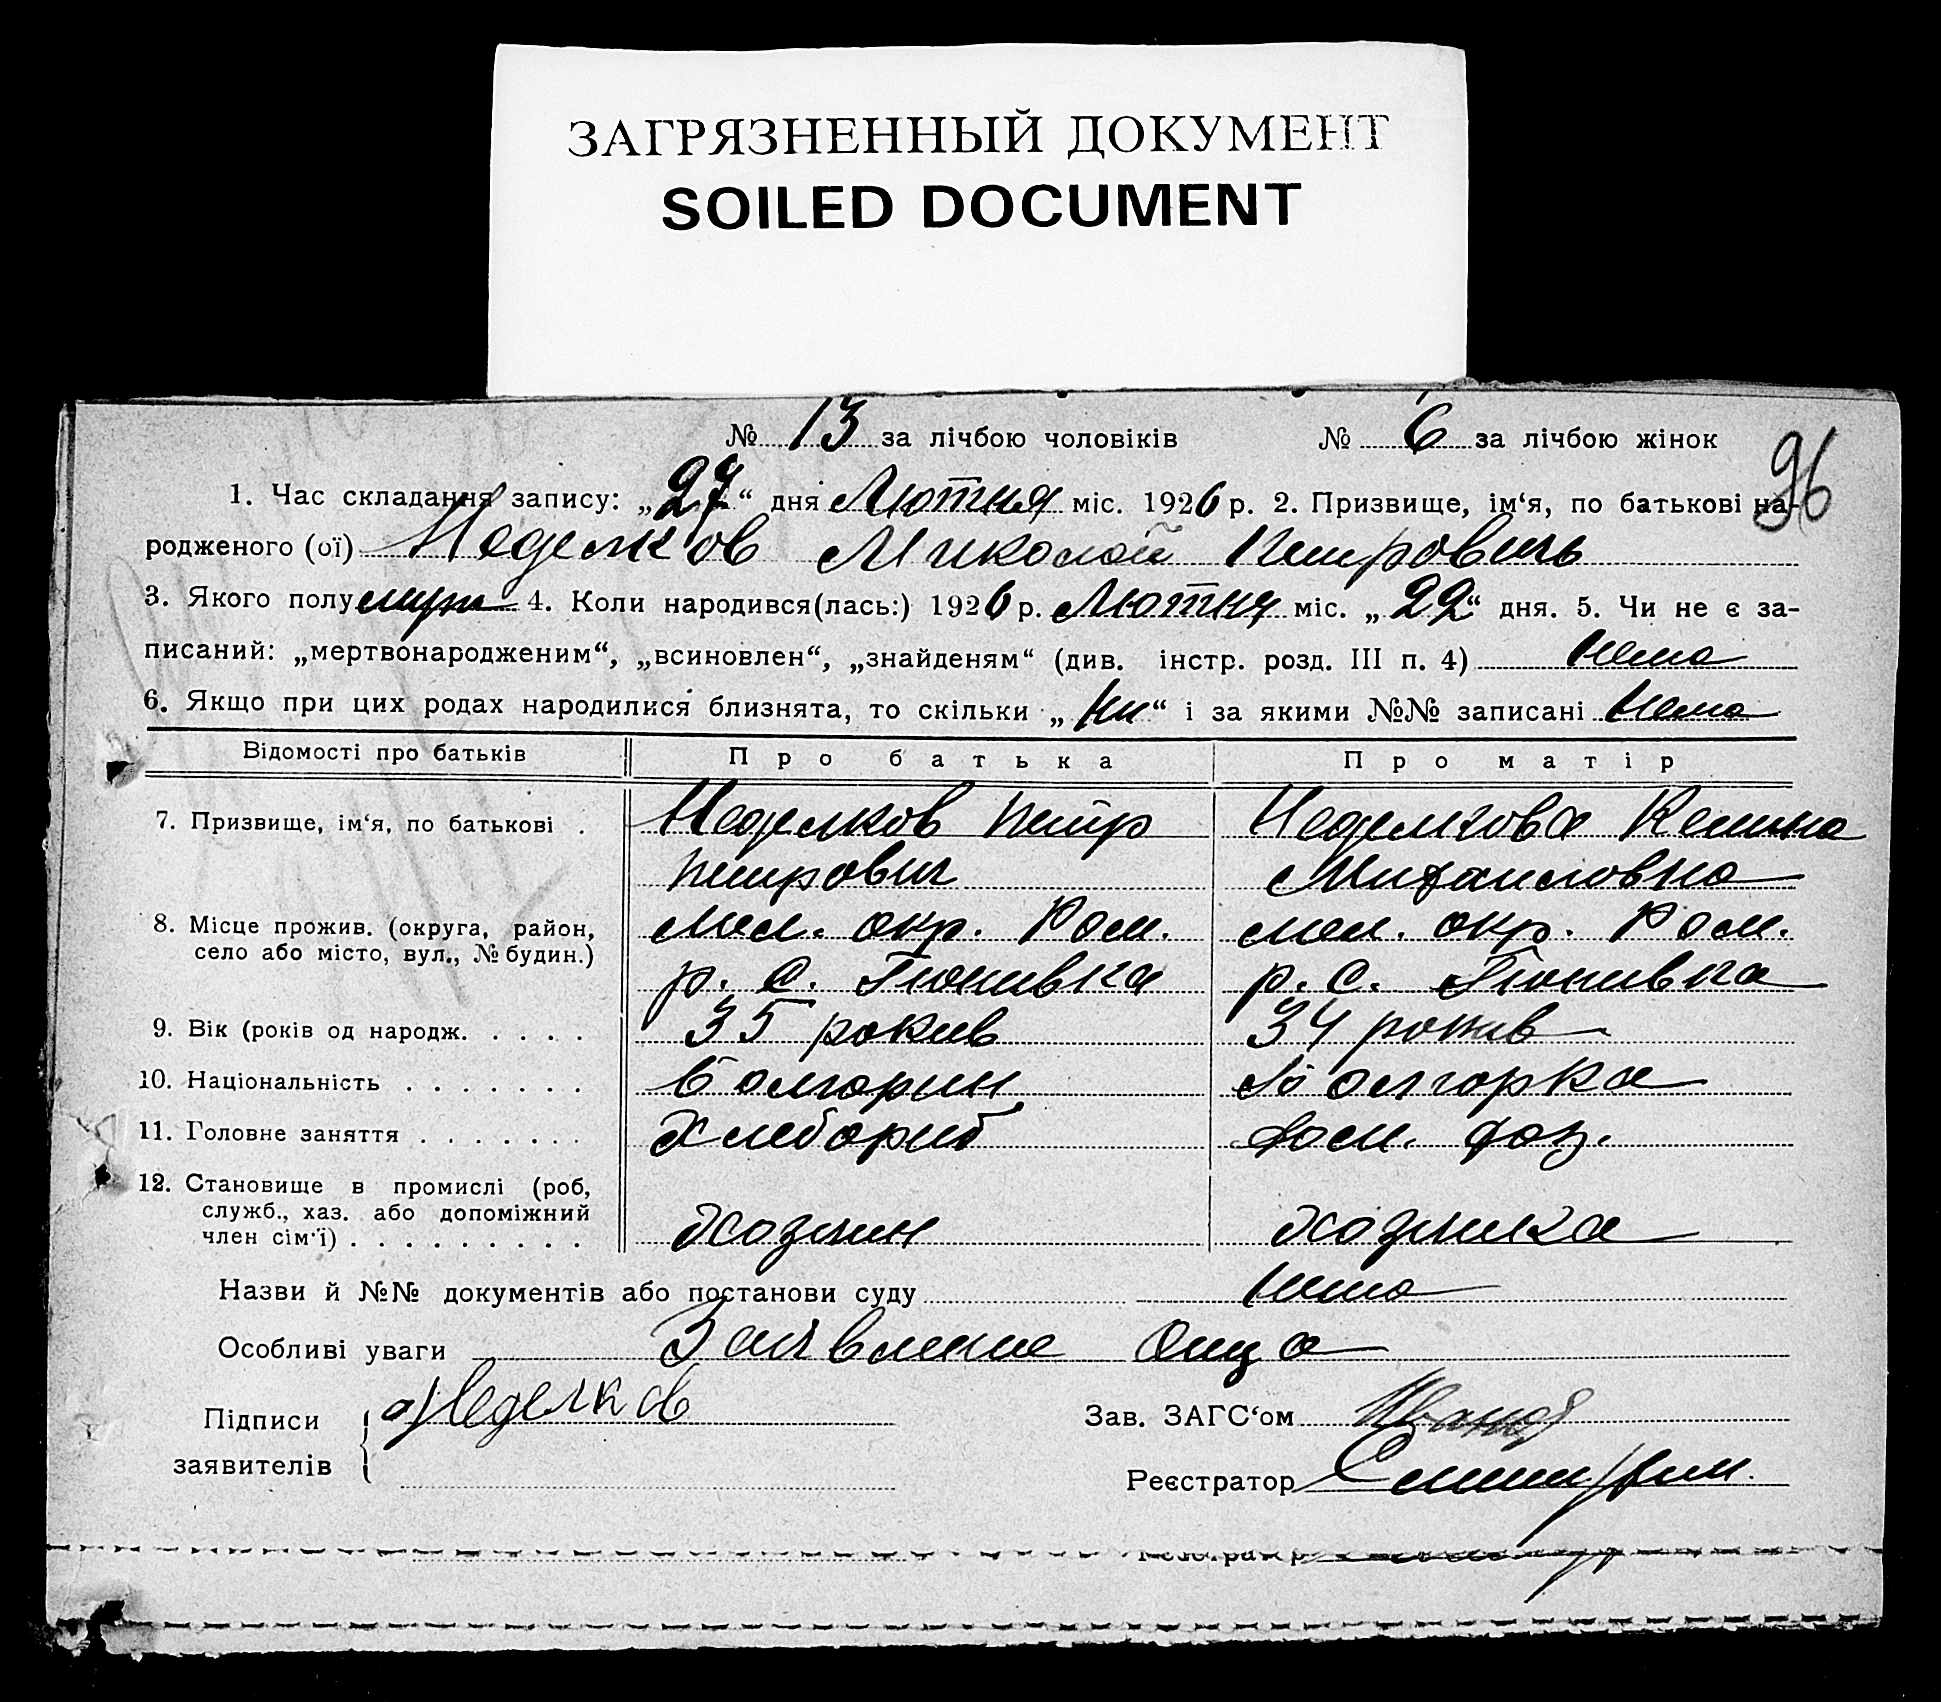 ЗАГРЯЗНЕННЫЙ ДОКУМЕНТ
SOILED DOCUMENT
№ 13 за лічбою чоловіків № 6 за лічбою жінок
96
1. Час складання запису: „27“ дня Лютня міс. 1926 р. 2. Призвище, ім‘я, по батькові на-
родженого (ої) Неделков Миколай Петровичь
3. Якого полу муж 4. Коли народився(лась:) 1926 р. Лютня міс. „22“ дня. 5. Чи не є за-
писаний: „мертвонародженим“, „всиновлен“, „знайденям“ (див. інстр. розд. III п. 4) нема
6. Якщо при цих родах народилися близнята, то скільки „ни“ і за якими №№ записані нема
Відомості про батьків Про батька Про матір
7. Призвище, ім‘я, по батькові . Неделков Петр Неделкова Келина
Петрович Михаиловна
8. Місце прожив. (округа, район, Мел. окр. Ром. мел. окр. Ром.
село або місто, вул., № будин.) р. С. Тюнивка р. С. Тюнивка
9. Вік (років од народж. . . . . 35 рокив 34 рокив
10. Національність . . . . . . . Болгорин Болгорка
11. Головне заняття . . . . . . . Хлебориб Дом. хоз.
12. Становище в промислі (роб,
служб., хаз. або допоміжний
член сім‘ї) . . . . . . . . . Хозяин Хозяика
Назви й №№ документів або постанови суду нема
Особливі уваги Заявление отца
Підписи Неделков Зав. ЗАГС‘ом
заявителів Реєстратор